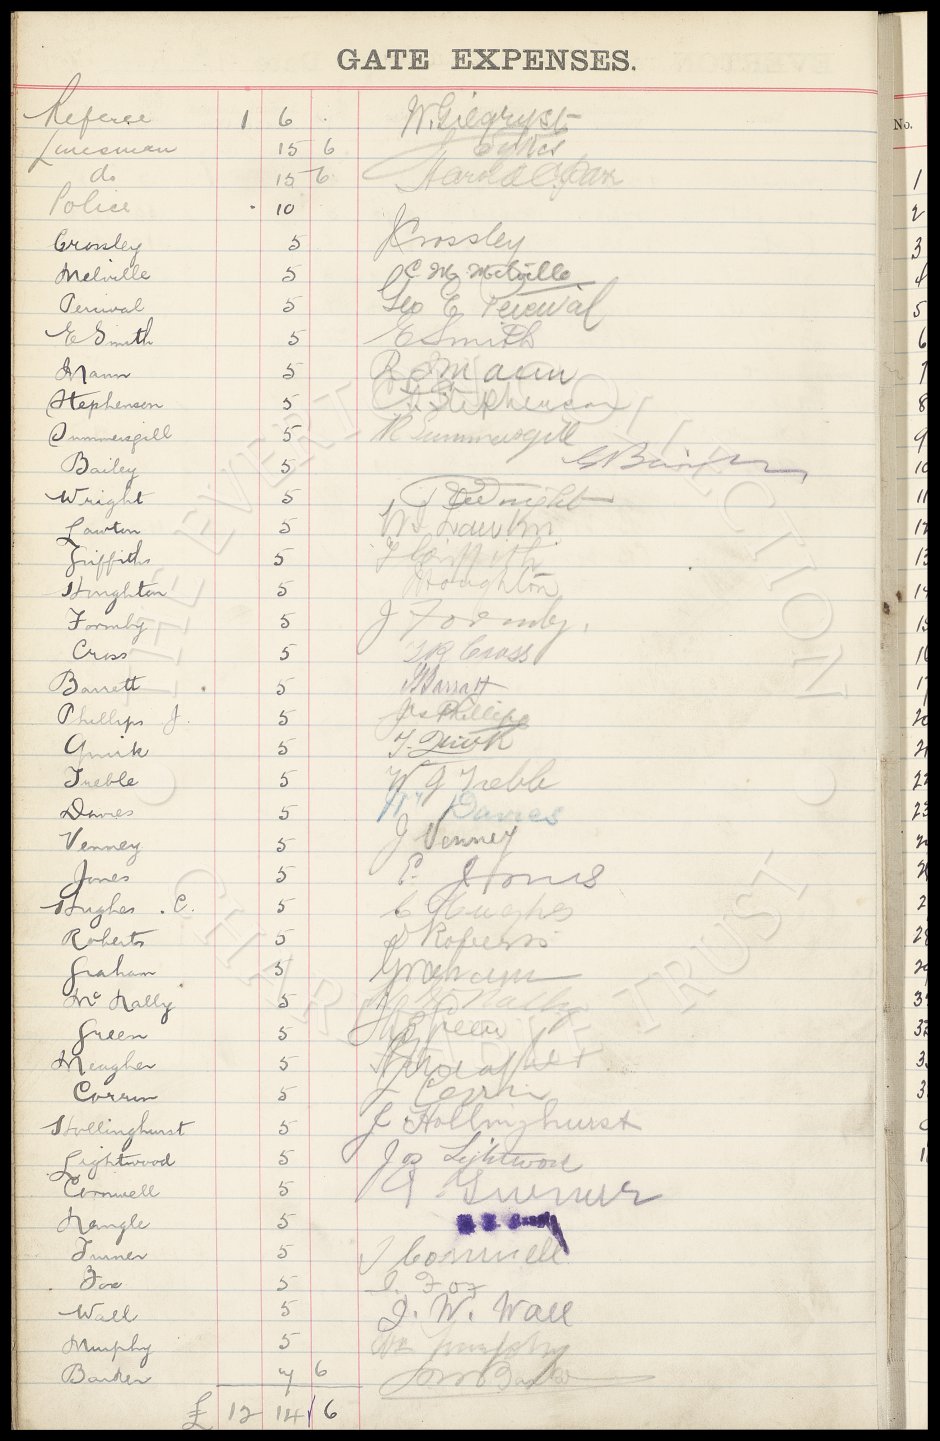 GATE EXPENSES.
Referee 1 6 . W. Gilgryst
Linesman 15 6 J Sykes
do 15 6 Harold
Police . 10
Crossley 5 J Crossley
Melville 5 C. M. Melville
Percival 5 Geo E Percival
E Smith 5 E Smith
Mann 5 R Mann
Stephenson 5 Stephenson
Summersgill 5 R Summersgill
Bailey 5 G Bailey
Wright 5 Wright
Lawton 5 W. Lawton
Griffiths 5 T Griffiths
Houghton 5 Houghton
Formby 5 J Formby.
Cross 5 T R Cross
Barrett 5 Barratt
Phillips J. 5 Jas Phillips
Quirk 5 T. Quirk
Treble 5 W G Treble
Davies 5 Wm Davies
Venney 5 J Venney
Jones 5 E. Jones
Hughes . C. 5 C Hughes
Roberts 5 Roberts
Graham 5 Graham
Mc Nally 5 Mc Nally
Green 5 Green
Meagher 5
Corrin 5 Corrin
Hollinghurst 5 J Hollinghurst
Lightwood 5 Jos Lightwood
Cornwell 5
Nangle 5
Turner 5 J Cornwell
Fox 5 Fox
Wall 5 J. W. Wall
Murphy 5 Wm Murphy
Barker 7 6 Barker
£ 12 14 6
No.
1
2
3
4
5
6
7
8
9
10
11
12
13
14
15
THE EVERTON COLLECTION
CHARITABLE TRUST